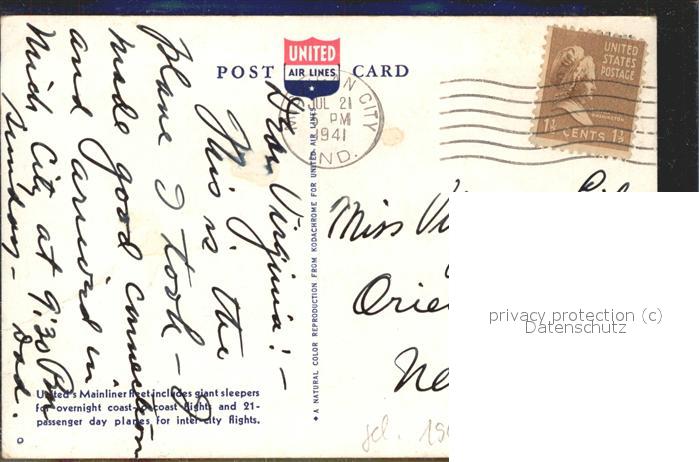 POST CARD
UNITED
AIR LINES
CITY
JUL 21
PM
1941
IND.
UNITED
STATES
POSTAGE
WASHINGTON
1½ CENTS 1½
Dear Virginia: -
This is the
plane I took - I
made good connection
and arrived in
Mich City at 9:30 PM
Sunday -
Dad.
A NATURAL COLOR REPRODUCTION FROM KODACHROME FOR UNITED AIR LINES
United's Mainliner fleet includes giant sleepers
for overnight coast-to-coast flights and 21-
passenger day planes for inter-city flights.
Miss Vi
Orie
Ne
privacy protection (c)
Datenschutz